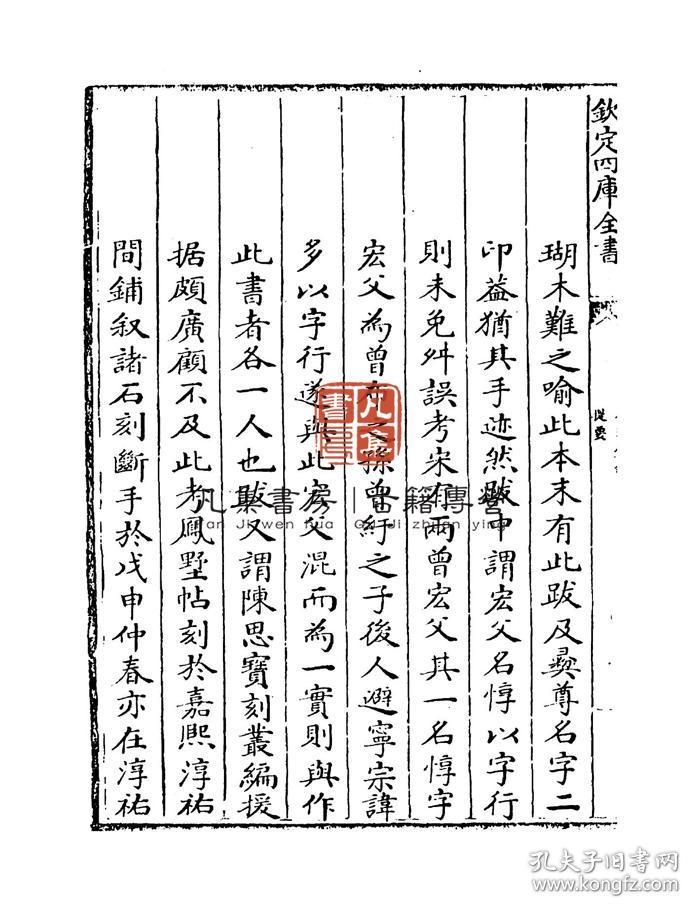 欽定四庫全書
提要
瑚木難之喻此本末有此跋及彞尊名字二
印葢猶其手迹然跋中謂宏父名惇以字行
則未免舛誤考宋有兩曾宏父其一名惇字
宏父為曾布之孫曾紆之子後人避寧宗諱
多以字行遂與此宏父混而為一實則與作
此書者各一人也跋又謂陳思寶刻叢編援
据頗廣顧不及此考鳳墅帖刻於嘉熙淳祐
間鋪叙諸石刻斷手於戊申仲春亦在淳祐
凡集書房
古籍傳營
Fan Ji wen hua
Gu Ji zhuan ying
孔夫子旧书网
www.kongfz.com